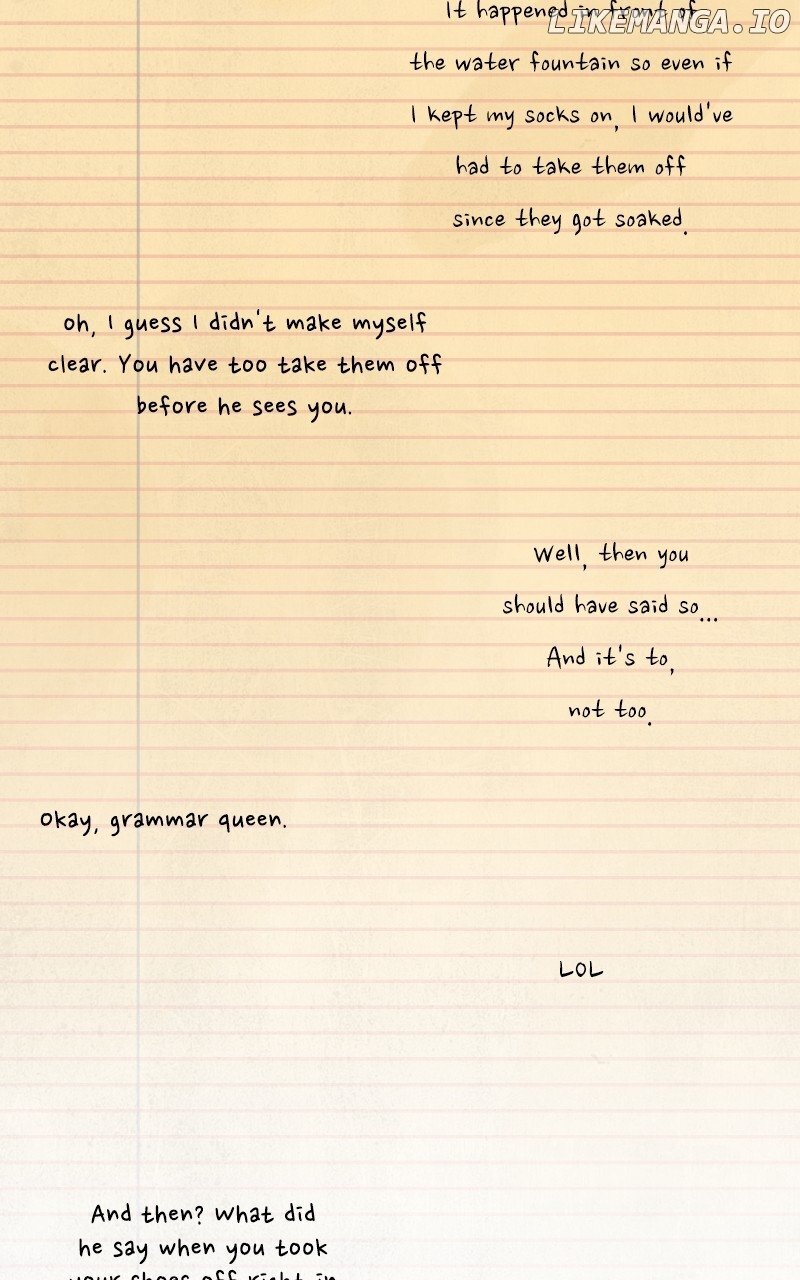 It happened in front of
LIKEMANGA.IO
the water fountain so even if
I kept my socks on, I would've
had to take them off
since they got soaked.
oh, I guess I didn't make myself
clear. You have too take them off
before he sees you.
Well, then you
should have said so...
And it's to,
not too.
Okay, grammar queen.
LOL
And then? What did
he say when you took
your shoes off right in